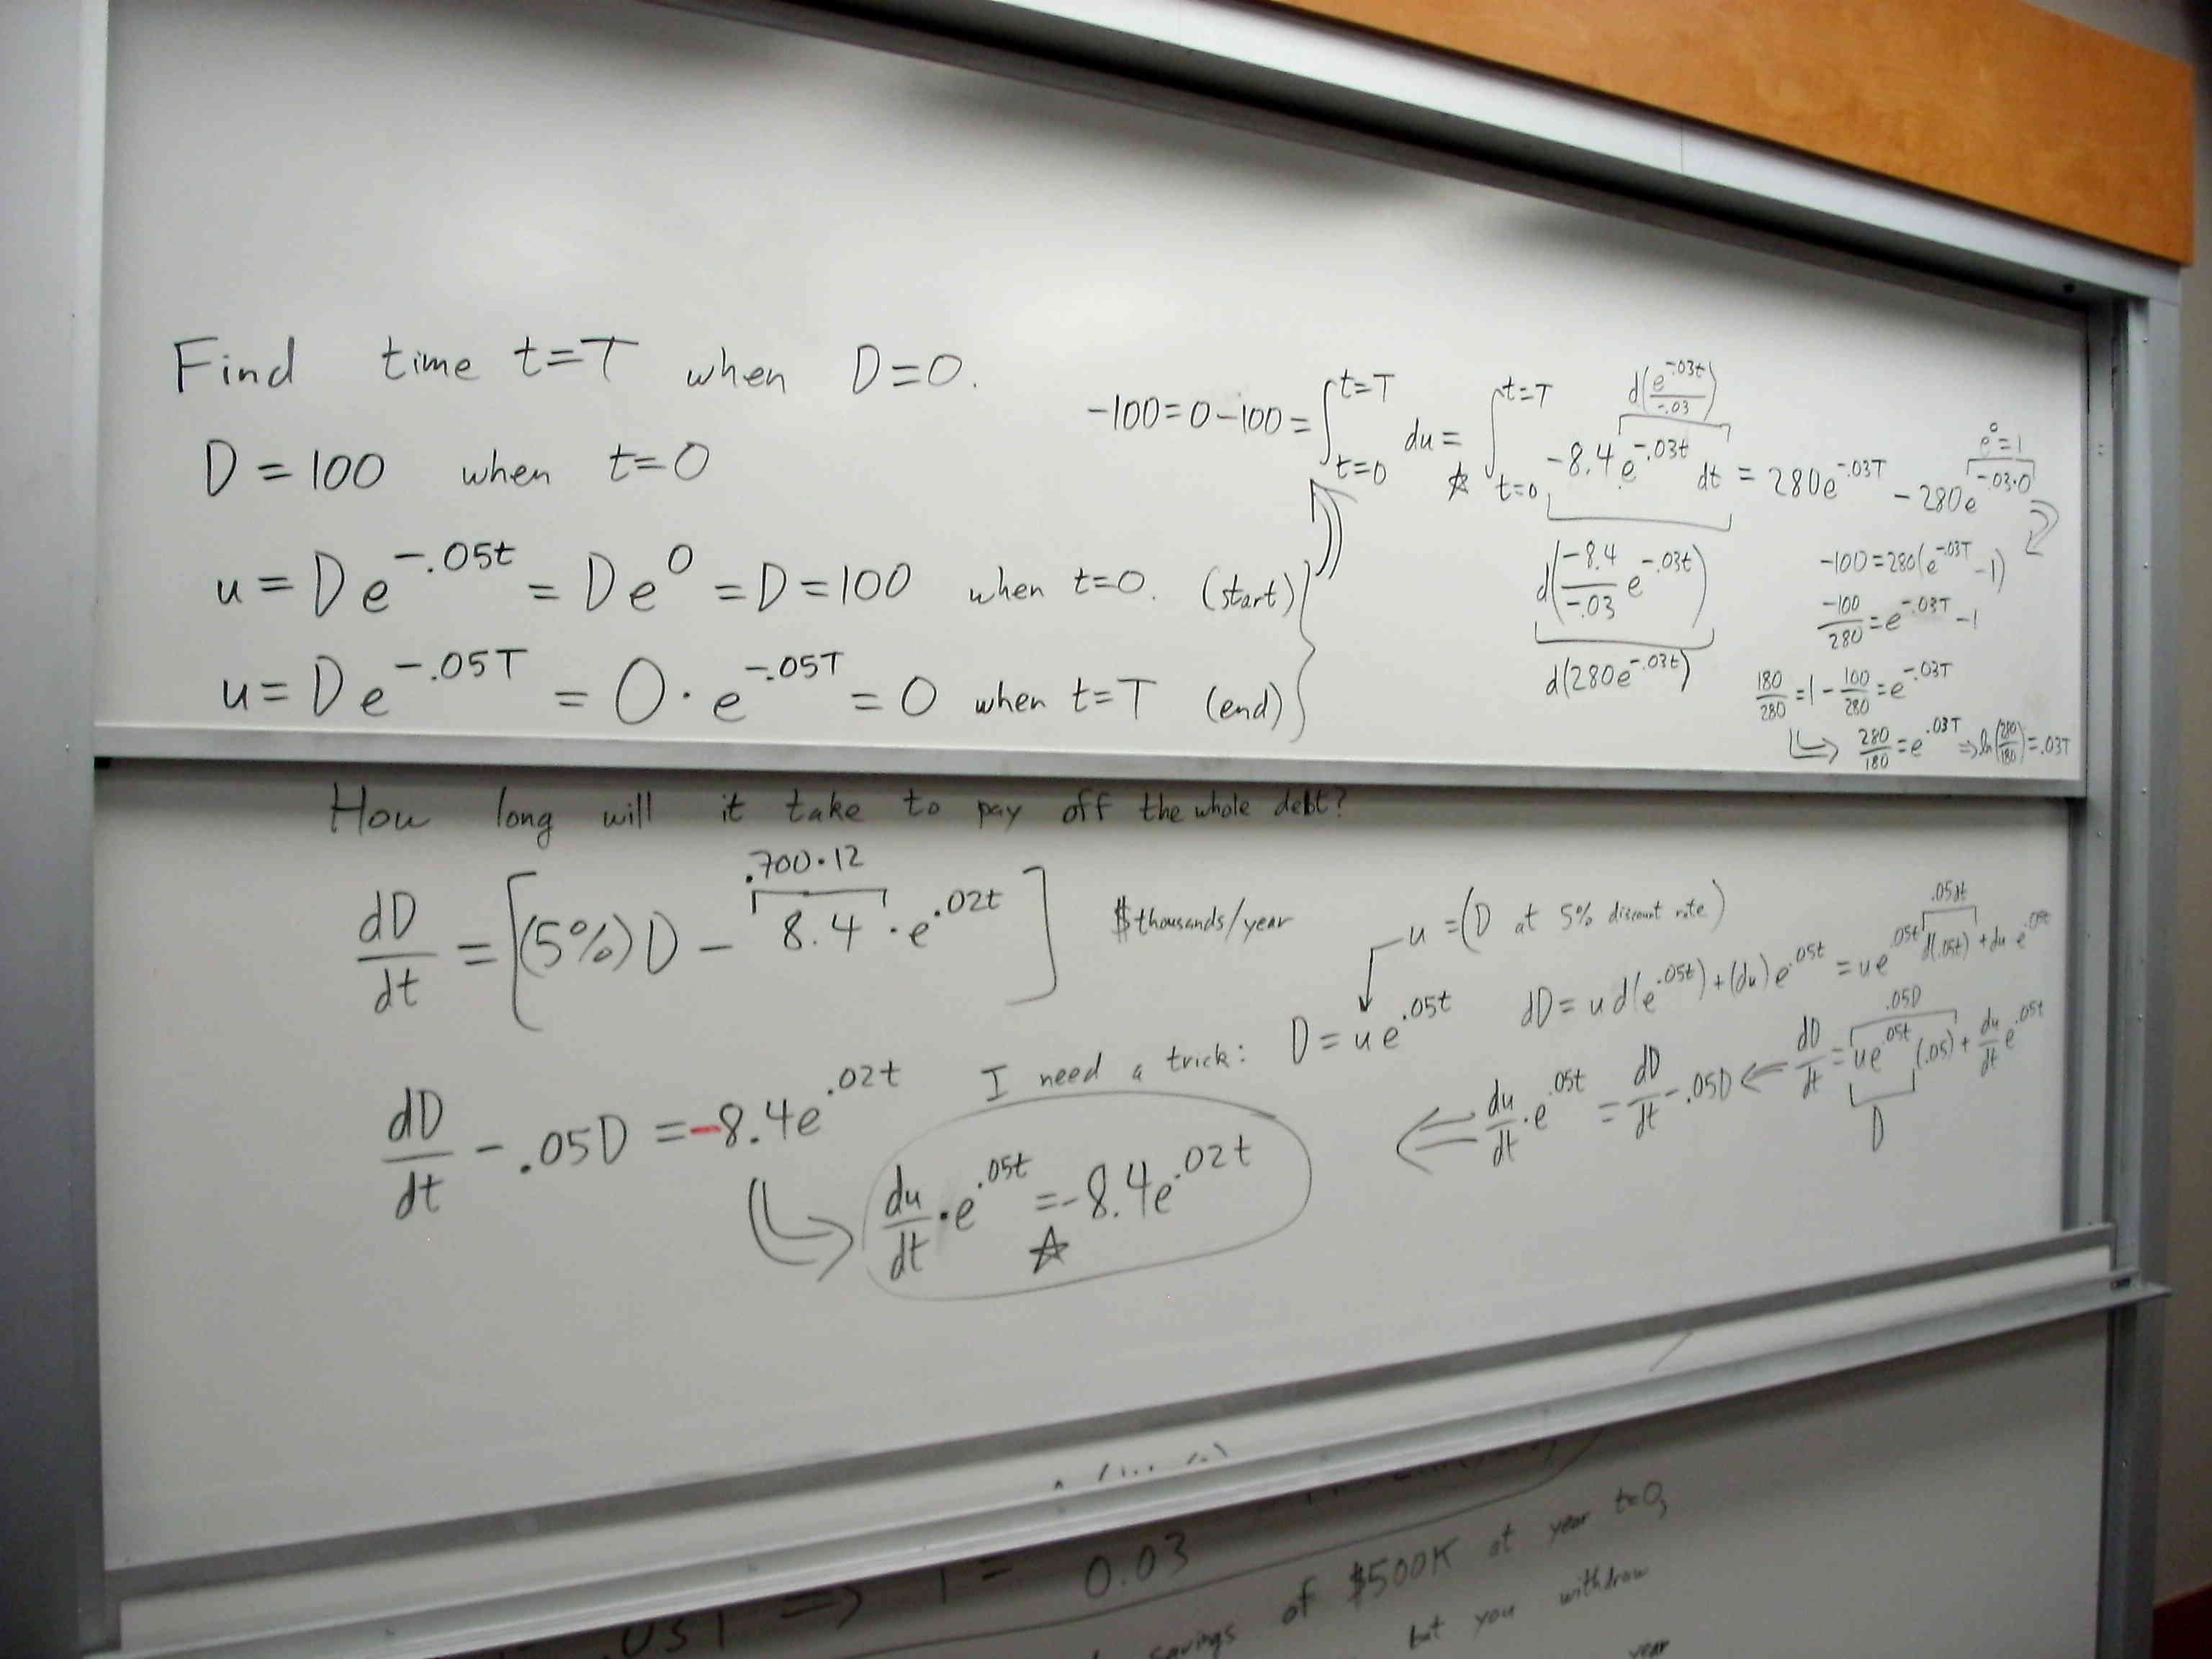 Find time t=T when D=0.
D = 100 when t=0
u = De^{-.05t} = De^0 = D = 100 when t=0. (start)
u = De^{-.05T} = 0 · e^{-.05T} = 0 when t=T (end)
-100 = 0-100 = ∫_{t=0}^{t=T} du =☆ ∫_{t=0}^{t=T} -8.4e^{-.03t} dt = 280e^{-.03T} - 280e^{-.03·0}
d(e^{-.03t}/-.03)
e^0=1
d(-8.4/-.03 e^{-.03t})
d(280e^{-.03t})
-100=280(e^{-.03T} -1)
-100/280 = e^{-.03T} -1
180/280 = 1 - 100/280 = e^{-.03T}
⇒ 280/180 = e^{.03T} ⇒ ln(280/180) = .03T
How long will it take to pay off the whole debt?
.700·12
dD/dt = [(5%)D - 8.4 · e^{.02t}] $thousands/year
dD/dt - .05D = -8.4e^{.02t}
I need a trick: D = ue^{.05t}
u = (D at 5% discount rate)
.05dt
dD = u d(e^{.05t}) + (du)e^{.05t} = ue^{.05t} d(.05t) + du e^{.05t}
.05D
du/dt · e^{.05t} = dD/dt - .05D ⇐ dD/dt = ue^{.05t} (.05) + du/dt e^{.05t}
D
⇒ du/dt · e^{.05t} =☆ -8.4e^{.02t}
⇒ T = 0.03
savings of $500K at year t=0,
but you withdraw
year